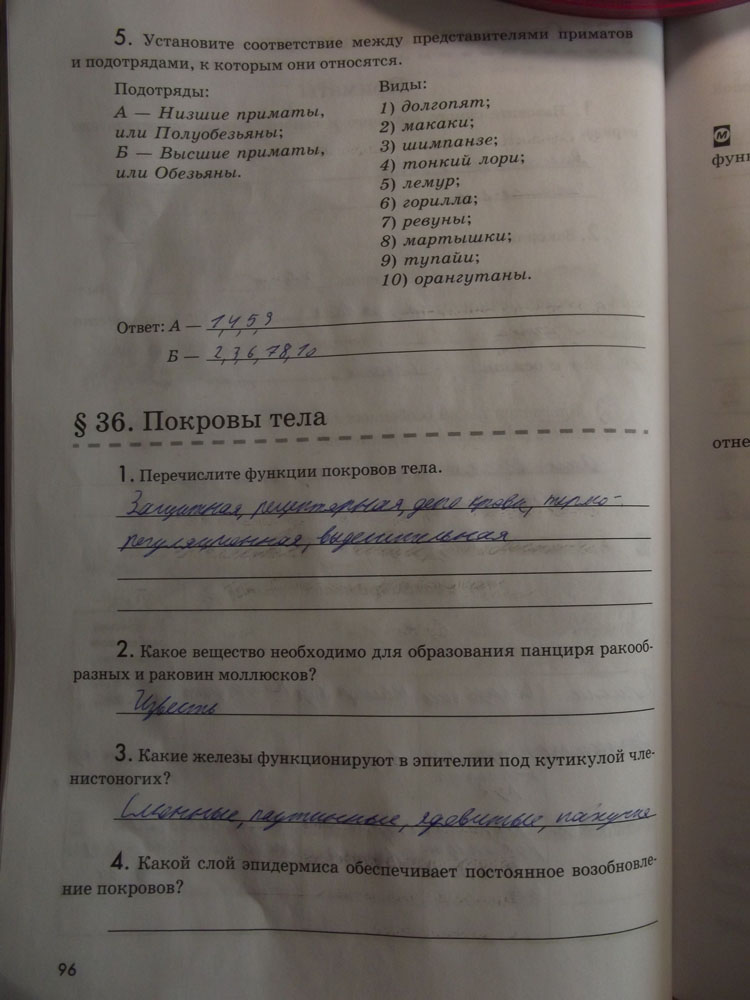 5. Установите соответствие между представителями приматов
и подотрядами, к которым они относятся.
Подотряды:
А — Низшие приматы,
или Полуобезьяны;
Б — Высшие приматы,
или Обезьяны.
Виды:
1) долгопят;
2) макаки;
3) шимпанзе;
4) тонкий лори;
5) лемур;
6) горилла;
7) ревуны;
8) мартышки;
9) тупайи;
10) орангутаны.
Ответ: А — 1,4,5,9
Б — 2,3,6,7,8,10
§ 36. Покровы тела
1. Перечислите функции покровов тела.
Защитная, рецепторная, депо крови, термо-
регуляционная, выделительная
2. Какое вещество необходимо для образования панциря ракооб-
разных и раковин моллюсков?
Известь
3. Какие железы функционируют в эпителии под кутикулой чле-
нистоногих?
Слюнные, паутинные, ядовитые, пахучие
4. Какой слой эпидермиса обеспечивает постоянное возобновле-
ние покровов?
96
М
отне